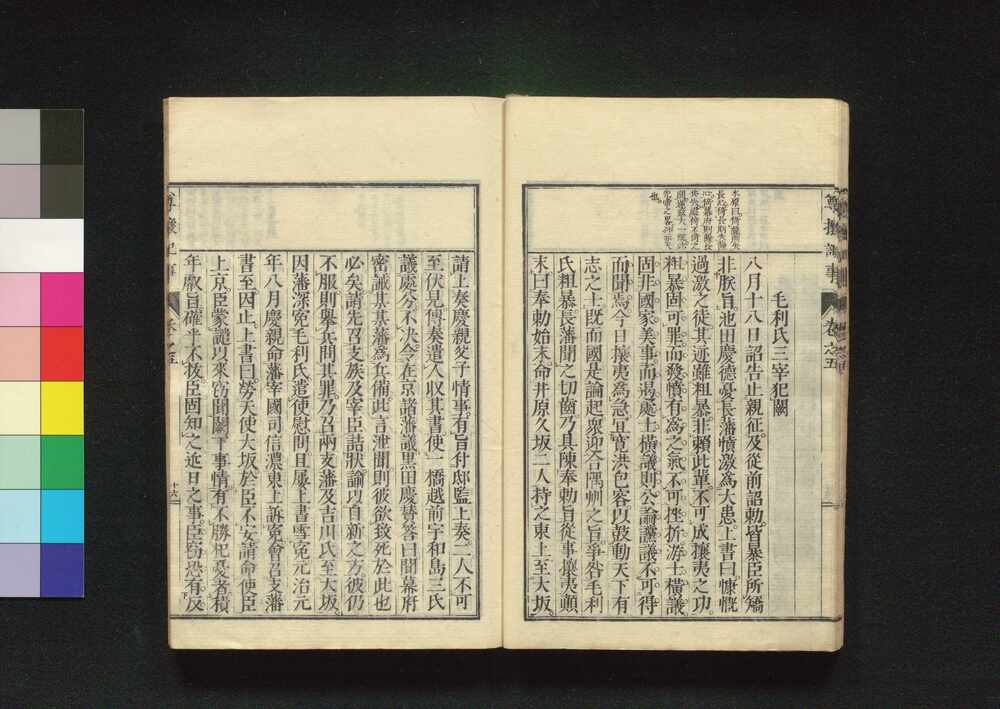 尊攘紀事
卷之五
毛利氏三宰犯闕
八月十八日詔告止親征及從前詔勅皆暴臣所矯
非朕旨池田慶德憂長藩憤激爲大患上書曰慷慨
過激之徒其迹雖粗暴非賴此輩不可成攘夷之功
粗暴固可罪而發憤有爲之氣不可挫折游士橫議
固非國家美事而遏處士橫議則公論讜議不可得
而聞焉今日攘夷爲急宜寬洪包容以鼓動天下有
志之士既而國是論起衆迎合隅州之旨爭咎毛利
氏粗暴長藩聞之切齒乃具陳奉勅旨從事攘夷顛
末曰奉勅始末命井原久坂二人持之東上至大坂
請上奏慶親父子情事有旨付邸監上奏二人不可
至伏見傳奏遣人收其書使一橋越前宇和島三氏
議處分不決令在京諸藩議黑田慶贊答曰聞幕府
密諭某某藩爲兵備此言泄聞則彼欲致死於此也
必矣請先召支族及宰臣詰狀諭以自新之方彼仍
不服則擧兵問其罪乃召兩支藩及吉川氏至大坂
因藩深寃毛利氏遣使慰問且屢上書雪寃元治元
年八月慶親命藩宰國司信濃東上訴寃會召支藩
書至因止上書曰勞天使大坂於臣不安請命使臣
上京臣蒙譴以來竊聞闕下事情有不勝杞憂者積
年叡旨確乎不拔臣固知之近日之事臣竊恐有反
尊攘紀事
卷之五
十六